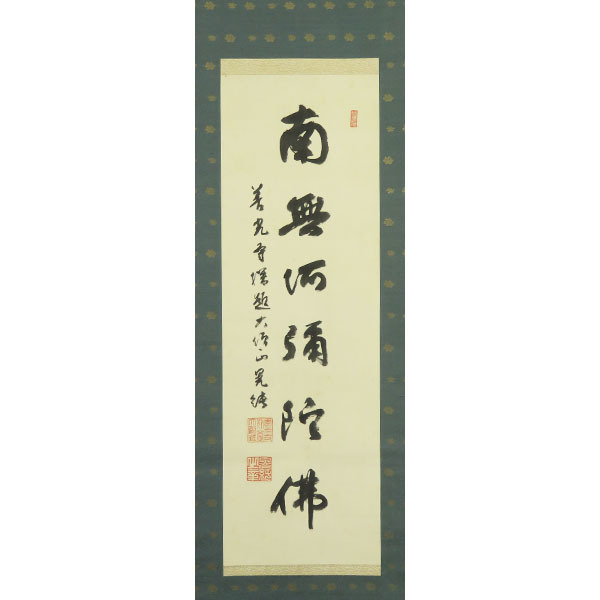 南無阿彌陀佛
善光寺探題大僧正